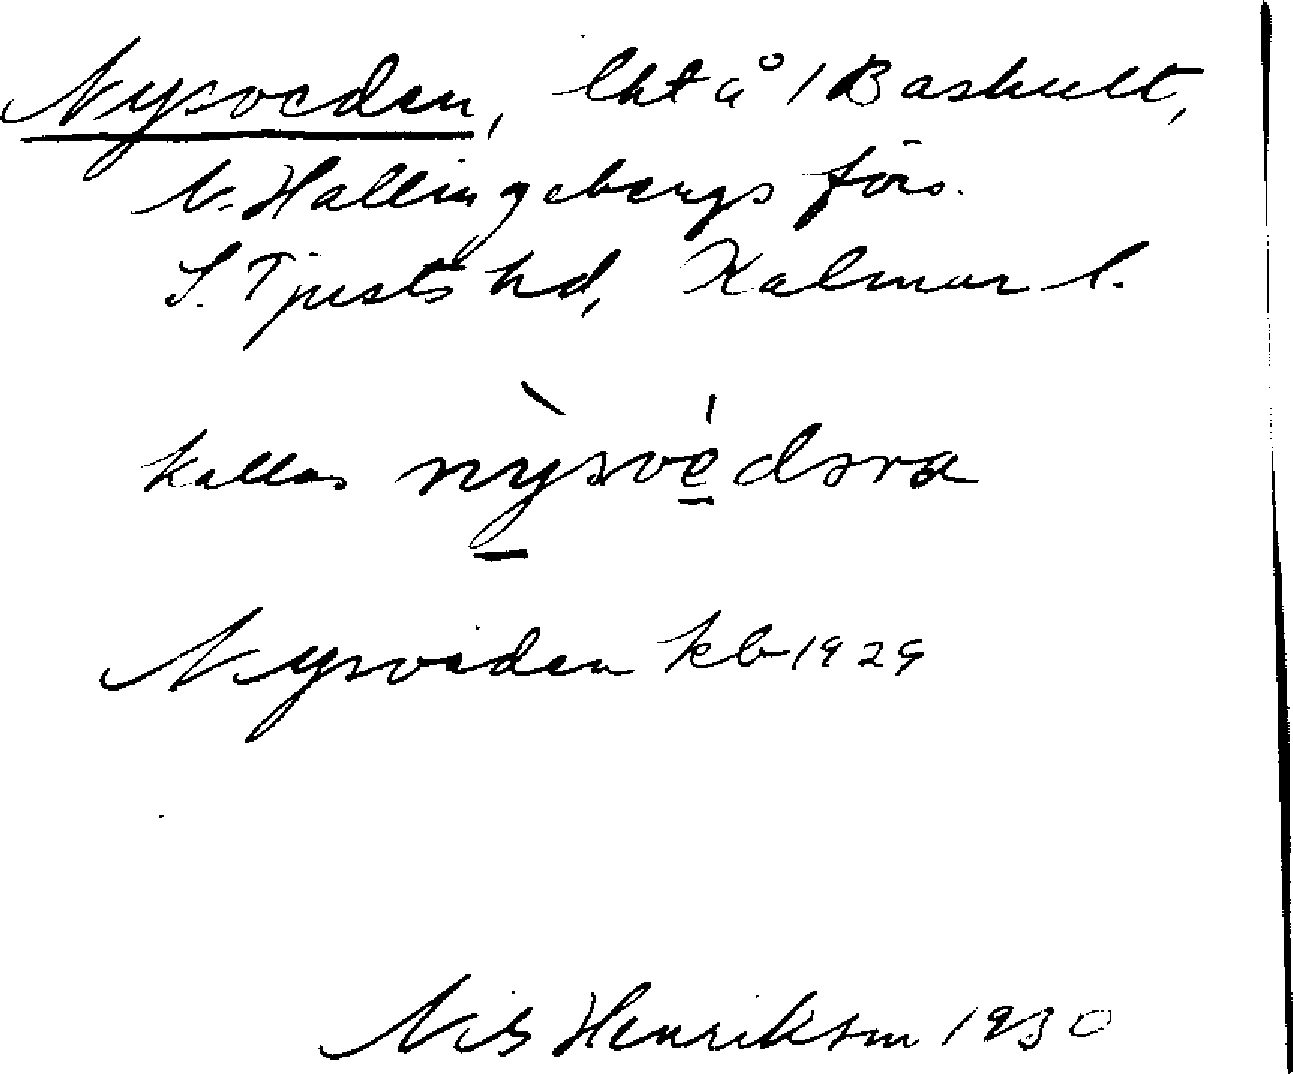 Nysveden, lht å 1 Baskult,
V. Hallingebergs förs.
S. Tjusts hd, Kalmar l.
kallas nỳsvédəra
Nysveden kb 1929
Nils Henrikson 1930